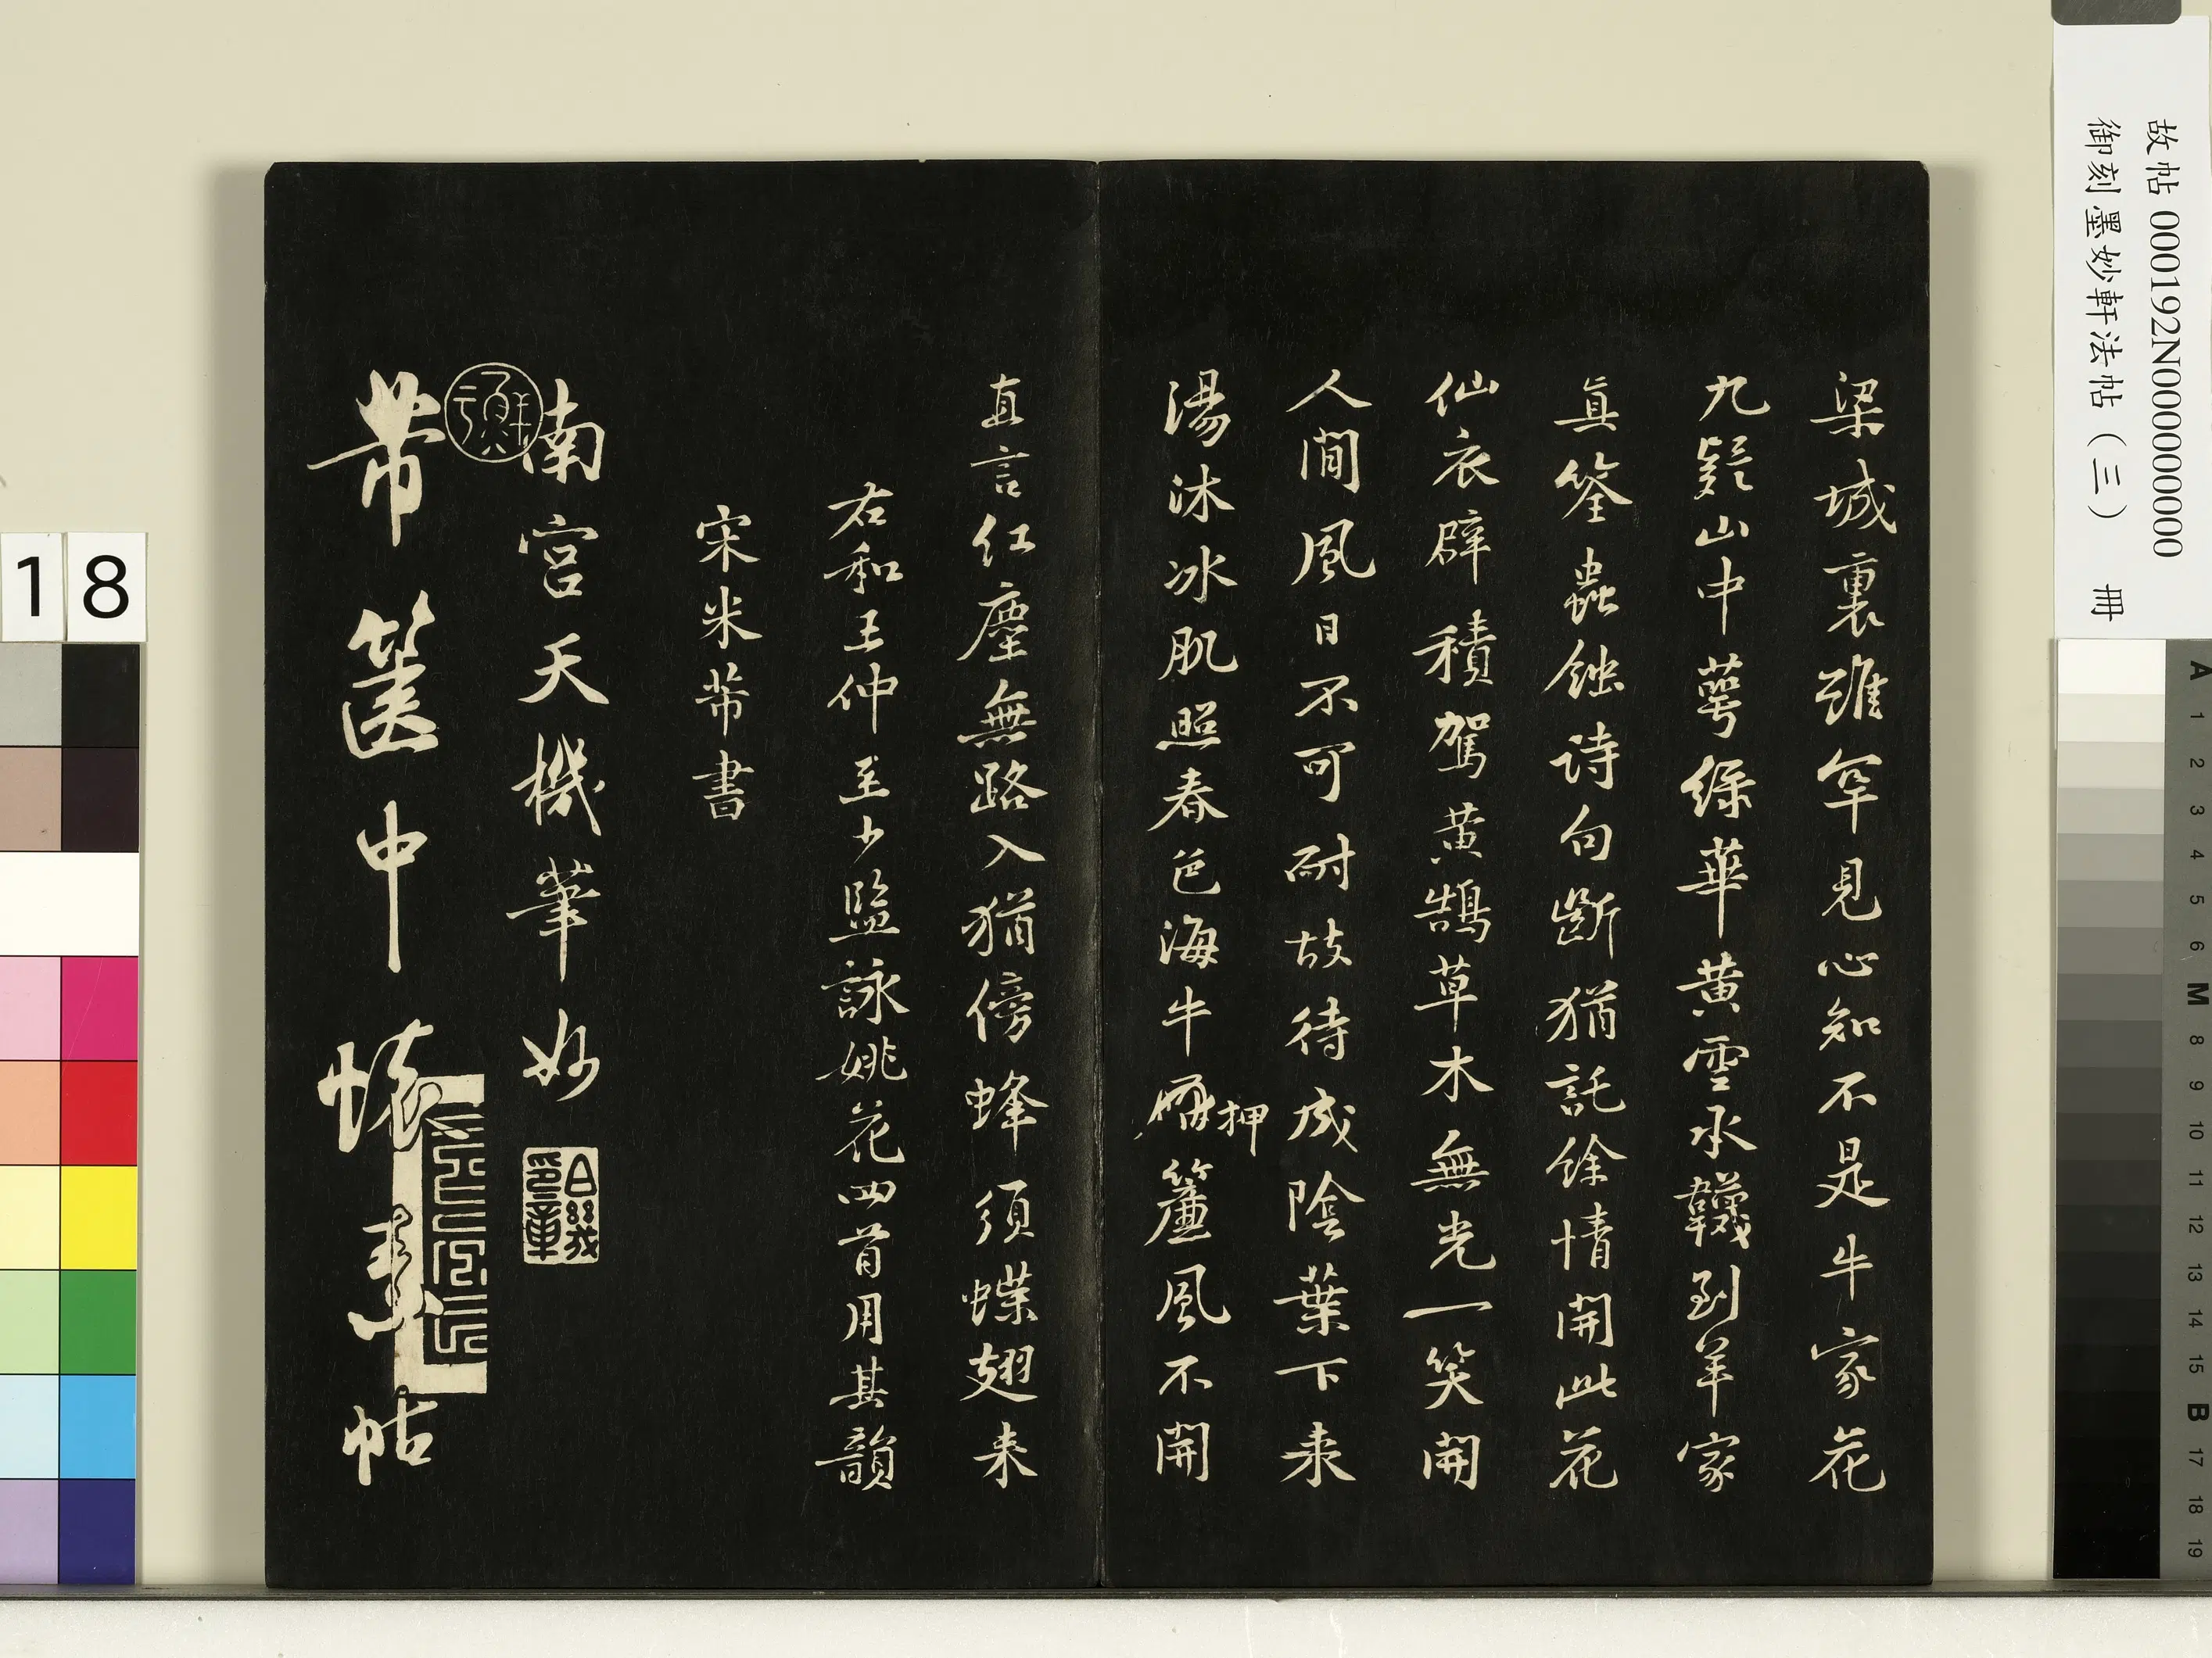 故帖 000192N000000000
御刻墨妙軒法帖（三） 冊
梁城裏雖罕見心知不是牛家花
九疑山中萼綠華黃雲承韈到羊家
真筌蟲蝕詩句斷猶託餘情開此花
仙衣襞積駕黃鵠草木無光一笑開
人間風日不可耐故待成陰葉下來
湯沐冰肌照春色海牛押簾風不開
直言紅塵無路入猶傍蜂須蝶翅來
右和王仲至少監詠姚花四首用其韻
宋米芾書
南宮天機筆妙
芾篋中懷素帖
18
A 1 2 3 4 5 6 M 8 9 10 11 12 13 14 15 B 17 18 19